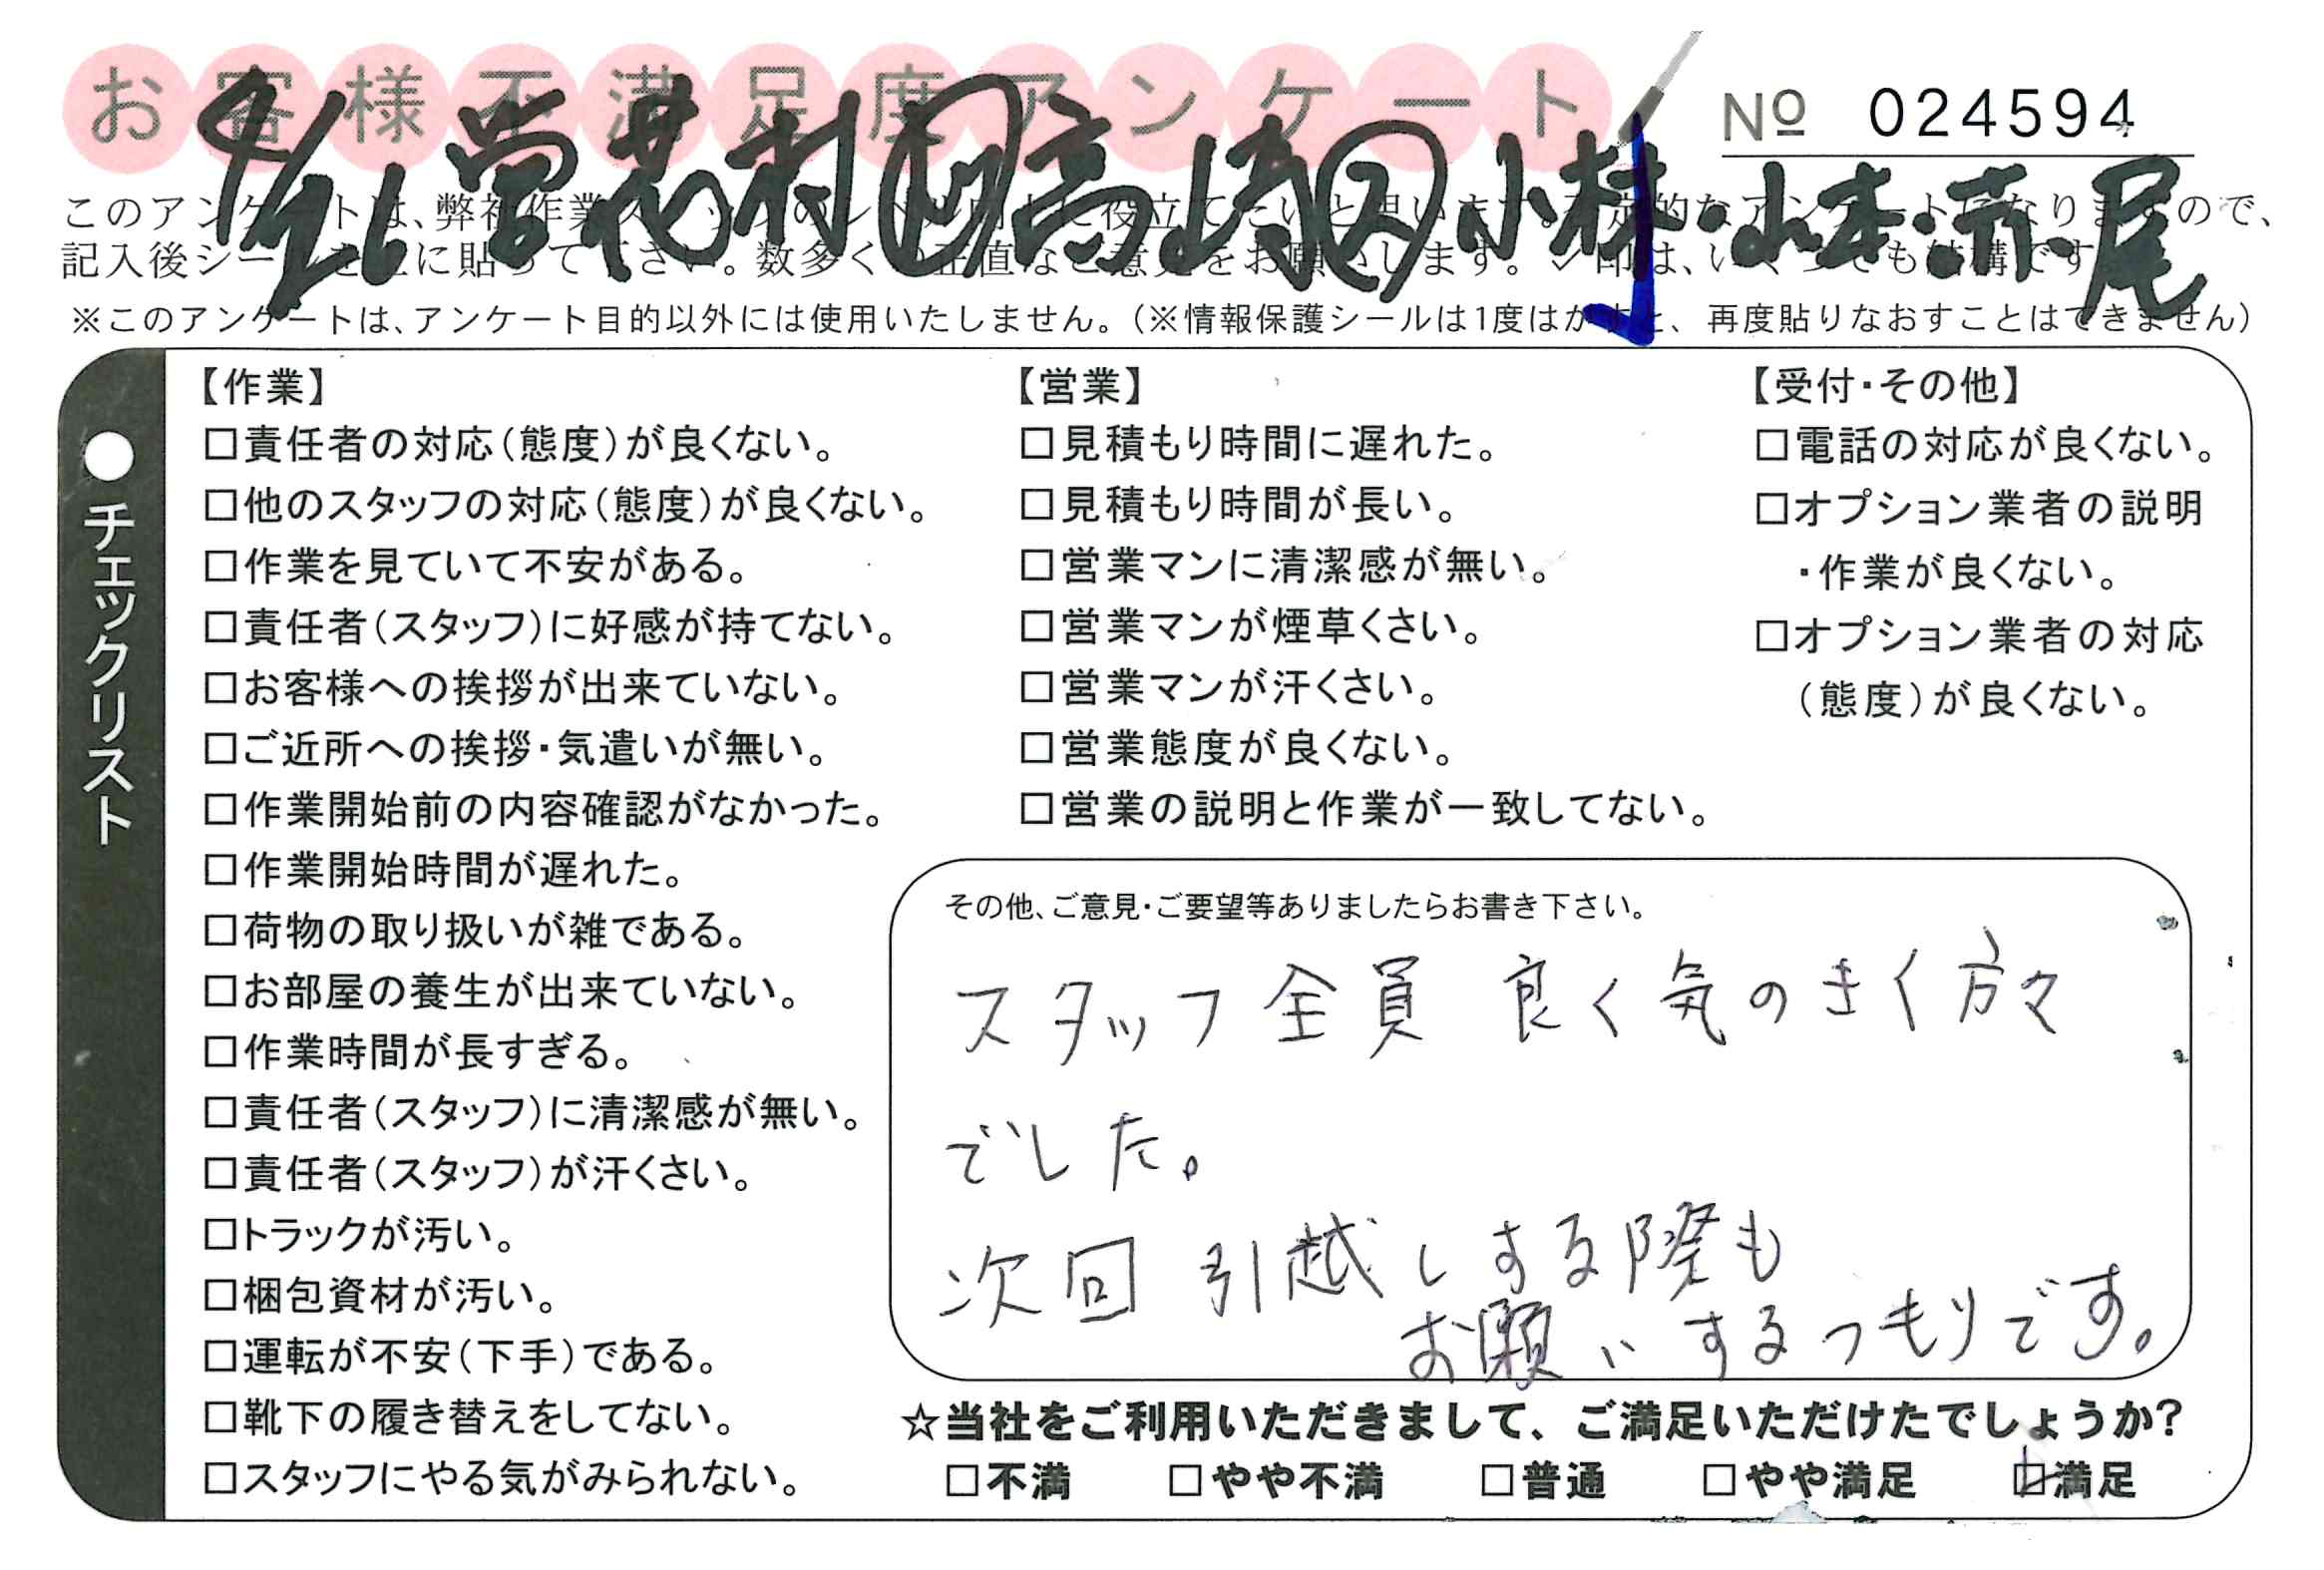 お客様不満足度アンケート
№ 024594
4/26 営 花村 高崎 小林・山本・赤尾
このアンケートは、弊社作業スタッフのレベル向上に役立てたいと思います。
記入後シールを上に貼って下さい。数多くの正直なご意見をお願いします。✓印は、いくつでも結構です
※このアンケートは、アンケート目的以外には使用いたしません。（※情報保護シールは1度はがすと、再度貼りなおすことはできません）
●チェックリスト
【作業】
□責任者の対応（態度）が良くない。
□他のスタッフの対応（態度）が良くない。
□作業を見ていて不安がある。
□責任者（スタッフ）に好感が持てない。
□お客様への挨拶が出来ていない。
□ご近所への挨拶・気遣いが無い。
□作業開始前の内容確認がなかった。
□作業開始時間が遅れた。
□荷物の取り扱いが雑である。
□お部屋の養生が出来ていない。
□作業時間が長すぎる。
□責任者（スタッフ）に清潔感が無い。
□責任者（スタッフ）が汗くさい。
□トラックが汚い。
□梱包資材が汚い。
□運転が不安（下手）である。
□靴下の履き替えをしてない。
□スタッフにやる気がみられない。
【営業】
□見積もり時間に遅れた。
□見積もり時間が長い。
□営業マンに清潔感が無い。
□営業マンが煙草くさい。
□営業マンが汗くさい。
□営業態度が良くない。
□営業の説明と作業が一致してない。
【受付・その他】
□電話の対応が良くない。
□オプション業者の説明
・作業が良くない。
□オプション業者の対応
（態度）が良くない。
その他、ご意見・ご要望等ありましたらお書き下さい。
スタッフ全員 良く気のきく方々
でした。
次回 引越しする際も
お願いするつもりです。
☆当社をご利用いただきまして、ご満足いただけたでしょうか？
□不満 □やや不満 □普通 □やや満足 ☑満足